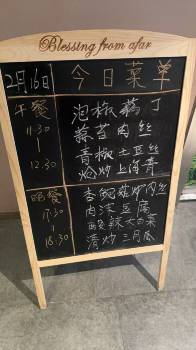 Blessing from afar
2月16日 今日菜单
午餐
11:30
~
12:30
泡椒藕丁
蒜苔肉丝
青椒土豆丝
炝炒上海青
晚餐
17:30
~
18:30
杏鲍菇炒肉丝
肉沫豆腐
酸辣大白菜
清炒三月瓜